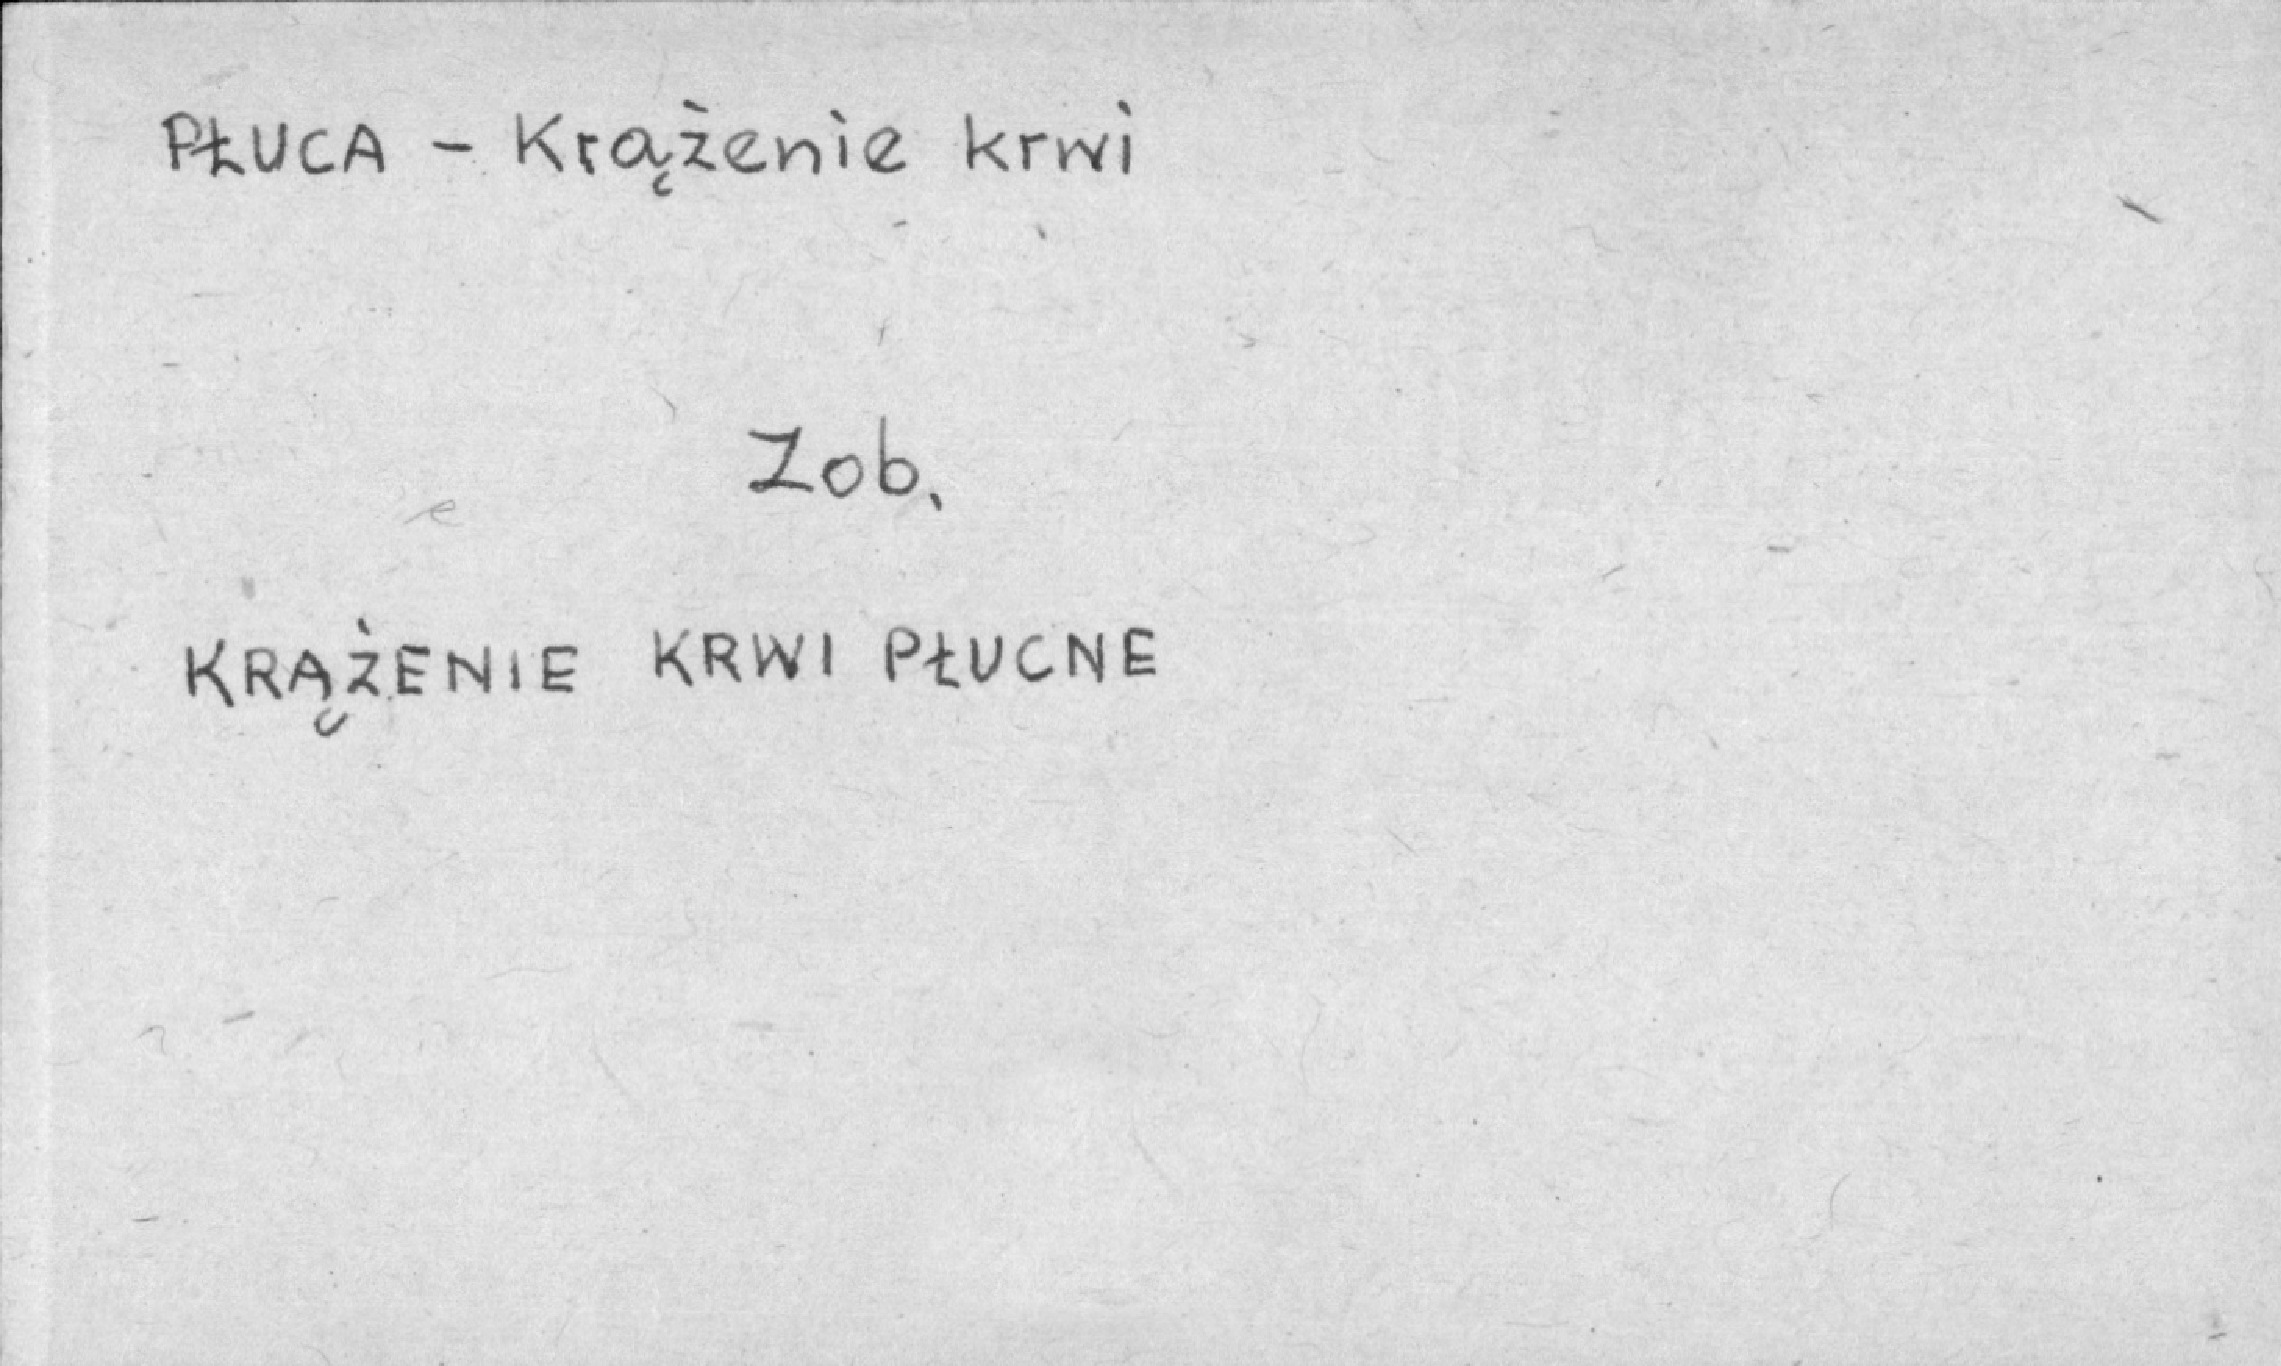 PŁUCA - Krążenie krwi
Zob.
KRĄŻENIE KRWI PŁUCNE